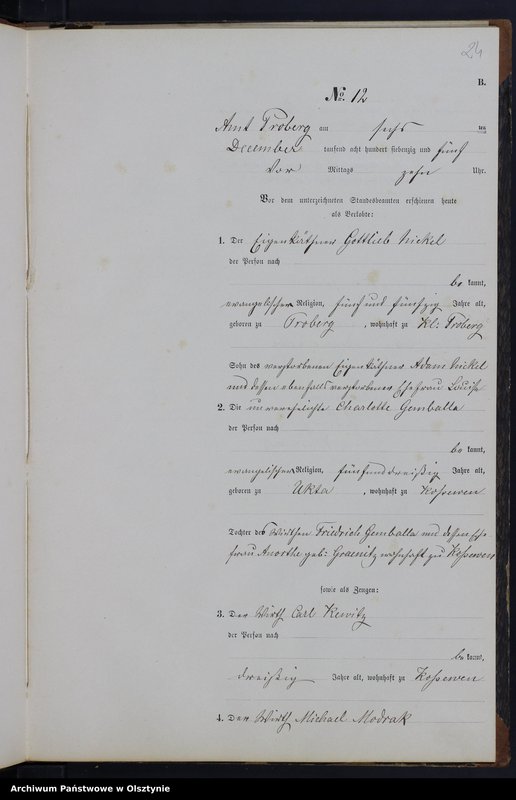 24
B.
No. 12
Amt Proberg am sechs ten
December tausend acht hundert siebenzig und fünf
Vor Mittags zehn Uhr.
Vor dem unterzeichneten Standesbeamten erschienen heute
als Verlobte:
1. Der Eigenkäthner Gottlieb Nickel
der Person nach
be kannt,
evangelischer Religion, fünf und fünfzig Jahre alt,
geboren zu Proberg, wohnhaft zu Kl: Proberg
Sohn des verstorbenen Eigenkäthner Adam Nickel
und dessen ebenfalls verstorbener Ehefrau Louise
2. Die unverehelichte Charlotte Gemballa
der Person nach
be kannt,
evangelischer Religion, fünfunddreißig Jahre alt,
geboren zu Ukta, wohnhaft zu Kossewen
Tochter des Wirthen Friedrich Gemballa und dessen Ehe
frau Anorthe geb: wohnhaft zu Kossewen
sowie als Zeugen:
3. Der Wirth Carl Kewitz
der Person nach
be kannt,
dreißig Jahre alt, wohnhaft zu Kossewen
4. Der Wirth Michael Modrak
Archiwum Państwowe w Olsztynie